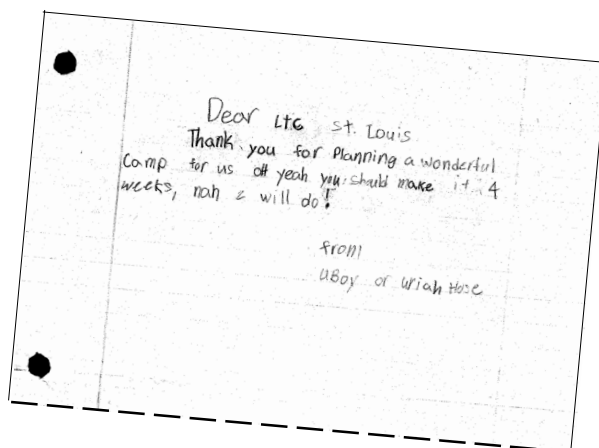 Dear LTC St. Louis
Thank you for Planning a wonderful
Camp for us oh yeah you should make it 4
weeks, nah 2 will do!
from
UBoy or Uriah Hose